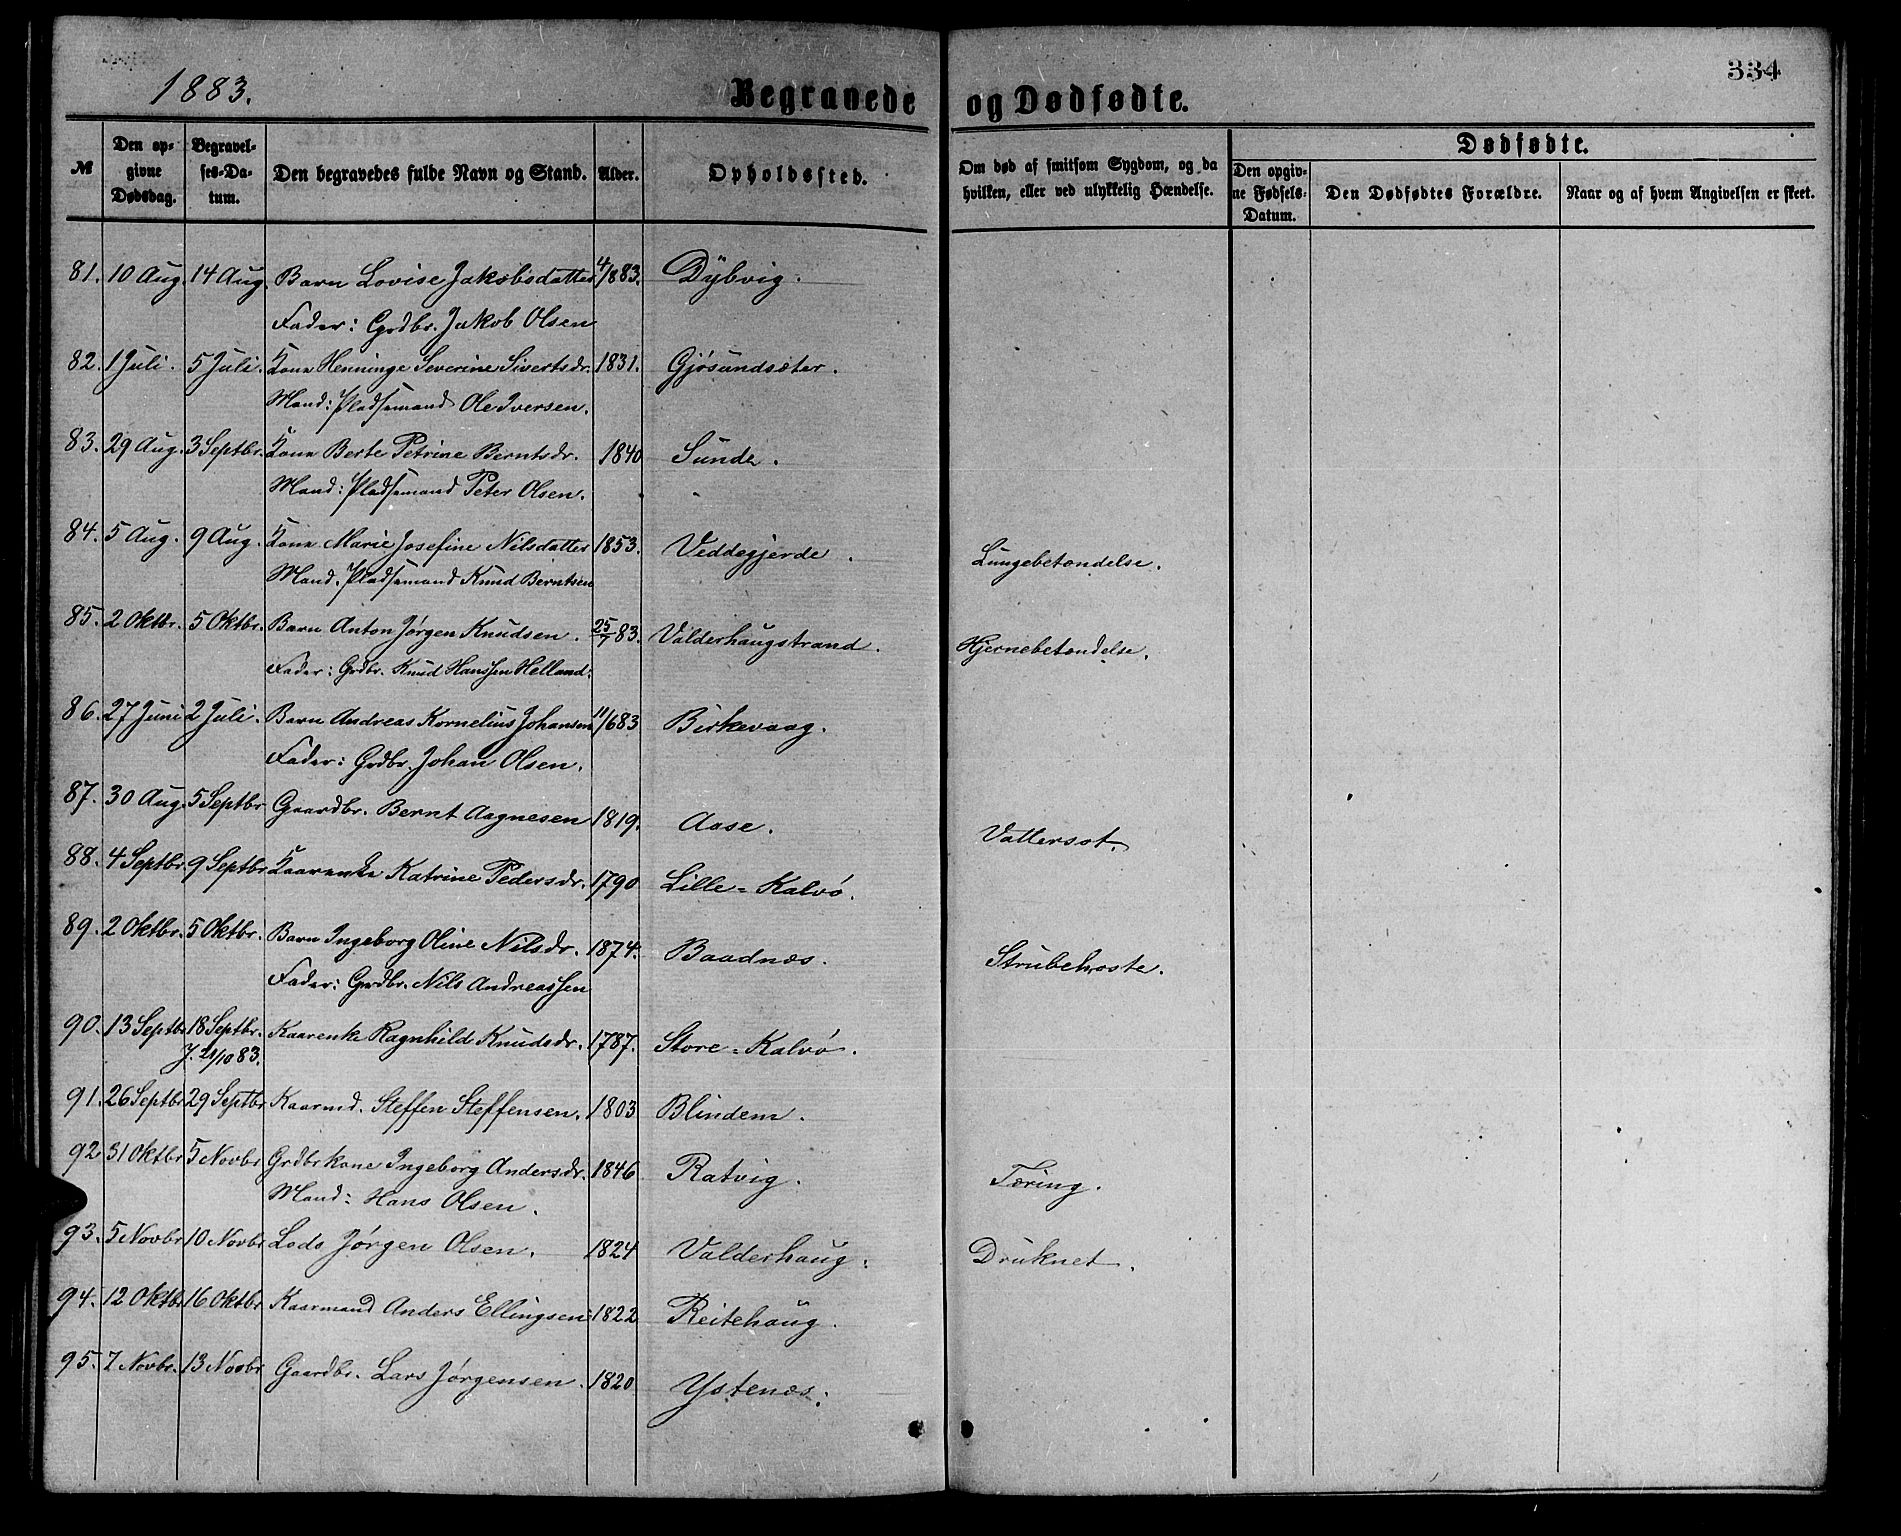 334
1883.
Begravede og Dødfødte.
№ Den opgivne Dødsdag. Begravelses-Datum. Den begravedes fulde Navn og Stand. Alder. Opholdssted. Om død af smitsom Sygdom, og da hvilken, eller ved ulykkelig Hændelse. Dødfødte. Den opgivne Fødsels-Datum. Den Dødfødtes Forældre. Naar og af hvem Angivelsen er skeet.
81. 10 Aug. 14 Aug. Barn Lovise Jakobsdatter 4/883. Dybvig.
Fader: Grdbr. Jakob Olsen
82. 1 Juli. 5 Juli. Kone Henninge Severine Sivertsdr. 1831. Gjøsundsæter.
Mand: Pladsemand Ole Iversen.
83. 29 Aug. 3 Septbr. Kone Berte Petrine Berntsdr. 1840 Sunde.
Mand: Pladsemand Peter Olsen.
84. 5 Aug. 9 Aug. Kone Marie Josefine Nilsdatter 1853. Veddegjerde. Lungebetændelse.
Mand. Pladsemand Knud Berntsen
85. 2 Oktbr. 5 Oktbr. Barn Anton Jørgen Knudsen. 25/7 83. Valderhaugstrand. Hjernebetændelse.
Fader: Grdbr. Knud Hanssen Helland.
86. 27 Juni 2 Juli. Barn Andreas Kornelius Johansen 11/683 Birkevaag.
Fader: Grdbr. Johan Olsen.
87. 30 Aug. 5 Septbr. Gaardbr. Bernt Aagnesen 1819. Aase. Vattersot.
88. 4 Septbr. 9 Septbr. Kaarenke Katrine Pedersdr. 1790 Lille-Kalvø.
89. 2 Oktbr. 5 Oktbr. Barn Ingeborg Oline Nilsdr. 1874. Baadnæs. Strubehoste.
Fader: Grdbr. Nils Andreassen
90. 13 Septbr. 18 Septbr. Kaarenke Ragnhild Knudsdr. 1787. Store-Kalvø.
J. 21/10 83.
91. 26 Septbr. 29 Septbr. Kaarmd. Steffen Steffensen. 1803 Blindem.
92 31 Oktbr 5 Novbr Grdbrkone Ingeborg Andersdr. 1846 Ratvig. Tæring.
Mand: Hans Olsen.
93. 5 Novbr 10 Novbr Lods Jørgen Olsen. 1824 Valderhaug. Druknet.
94. 12 Oktbr 16 Oktbr Kaarmand Anders Ellingsen 1822 Reitehaug.
95. 7 Novbr. 13 Novbr Gaardbr. Lars Jørgensen. 1820 Ystenæs.